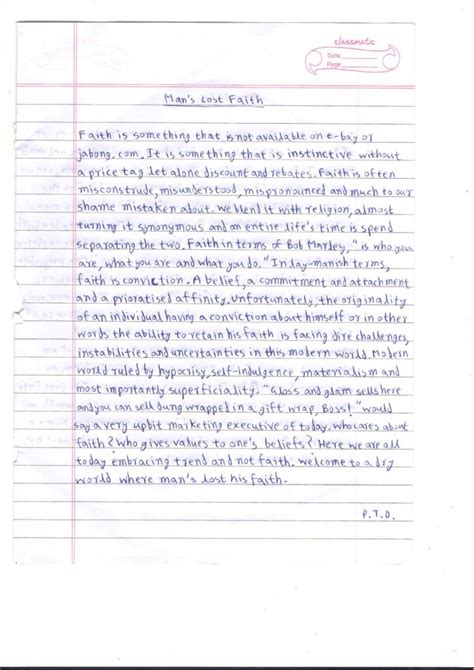 classmate
Date
Page
Man's Lost Faith
Faith is something that is not available on e-bay or
jabong.com. It is something that is instinctive without
a price tag let alone discount and rebates. Faith is often
misconstrude, misunderstood, mispronounced and much to our
shame mistaken about. We blend it with religion, almost
turning it synonymous and an entire life's time is spend
separating the two. Faith in terms of Bob Marley, "is who you
are, what you are and what you do." In lay-manish terms,
faith is conviction. A belief, a commitment and attachment
and a prioratised affinity. Unfortunately, the originality
of an individual having a conviction about himself or in other
words the ability to retain his faith is facing dire challenges,
instabilities and uncertainties in this modern world. Modern
world ruled by hypocrisy, self-indulgence, materialism and
most importantly superficiality. "Gloss and glam sells here
and you can sell dung wrapped in a gift wrap, Boss!" would
say a very upbit marketing executive of today. who cares about
faith? Who gives values to one's beliefs? Here we are all
today embracing trend and not faith. welcome to a dry
world where man's lost his faith.
P.T.O.